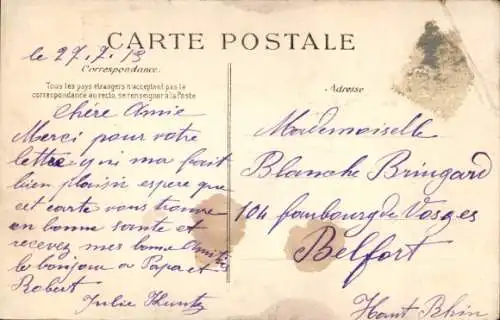 CARTE POSTALE
le 27.7.13
Correspondance.
Tous les pays étrangers n'acceptant pas la
correspondance au recto, se renseigner à la Poste
Adresse
Chére Amie
Merci pour votre
lettre qui ma fait
bien plaisir espere que
cet carte vous trouve
en bonne sante et
recevez mes bonne Amitiés
le bonjour a Papa et
Robert
Julie Kuntz
Mademoiselle
Blanche Bringard
104 faubourg de Vosges
Belfort
Haut Rhin